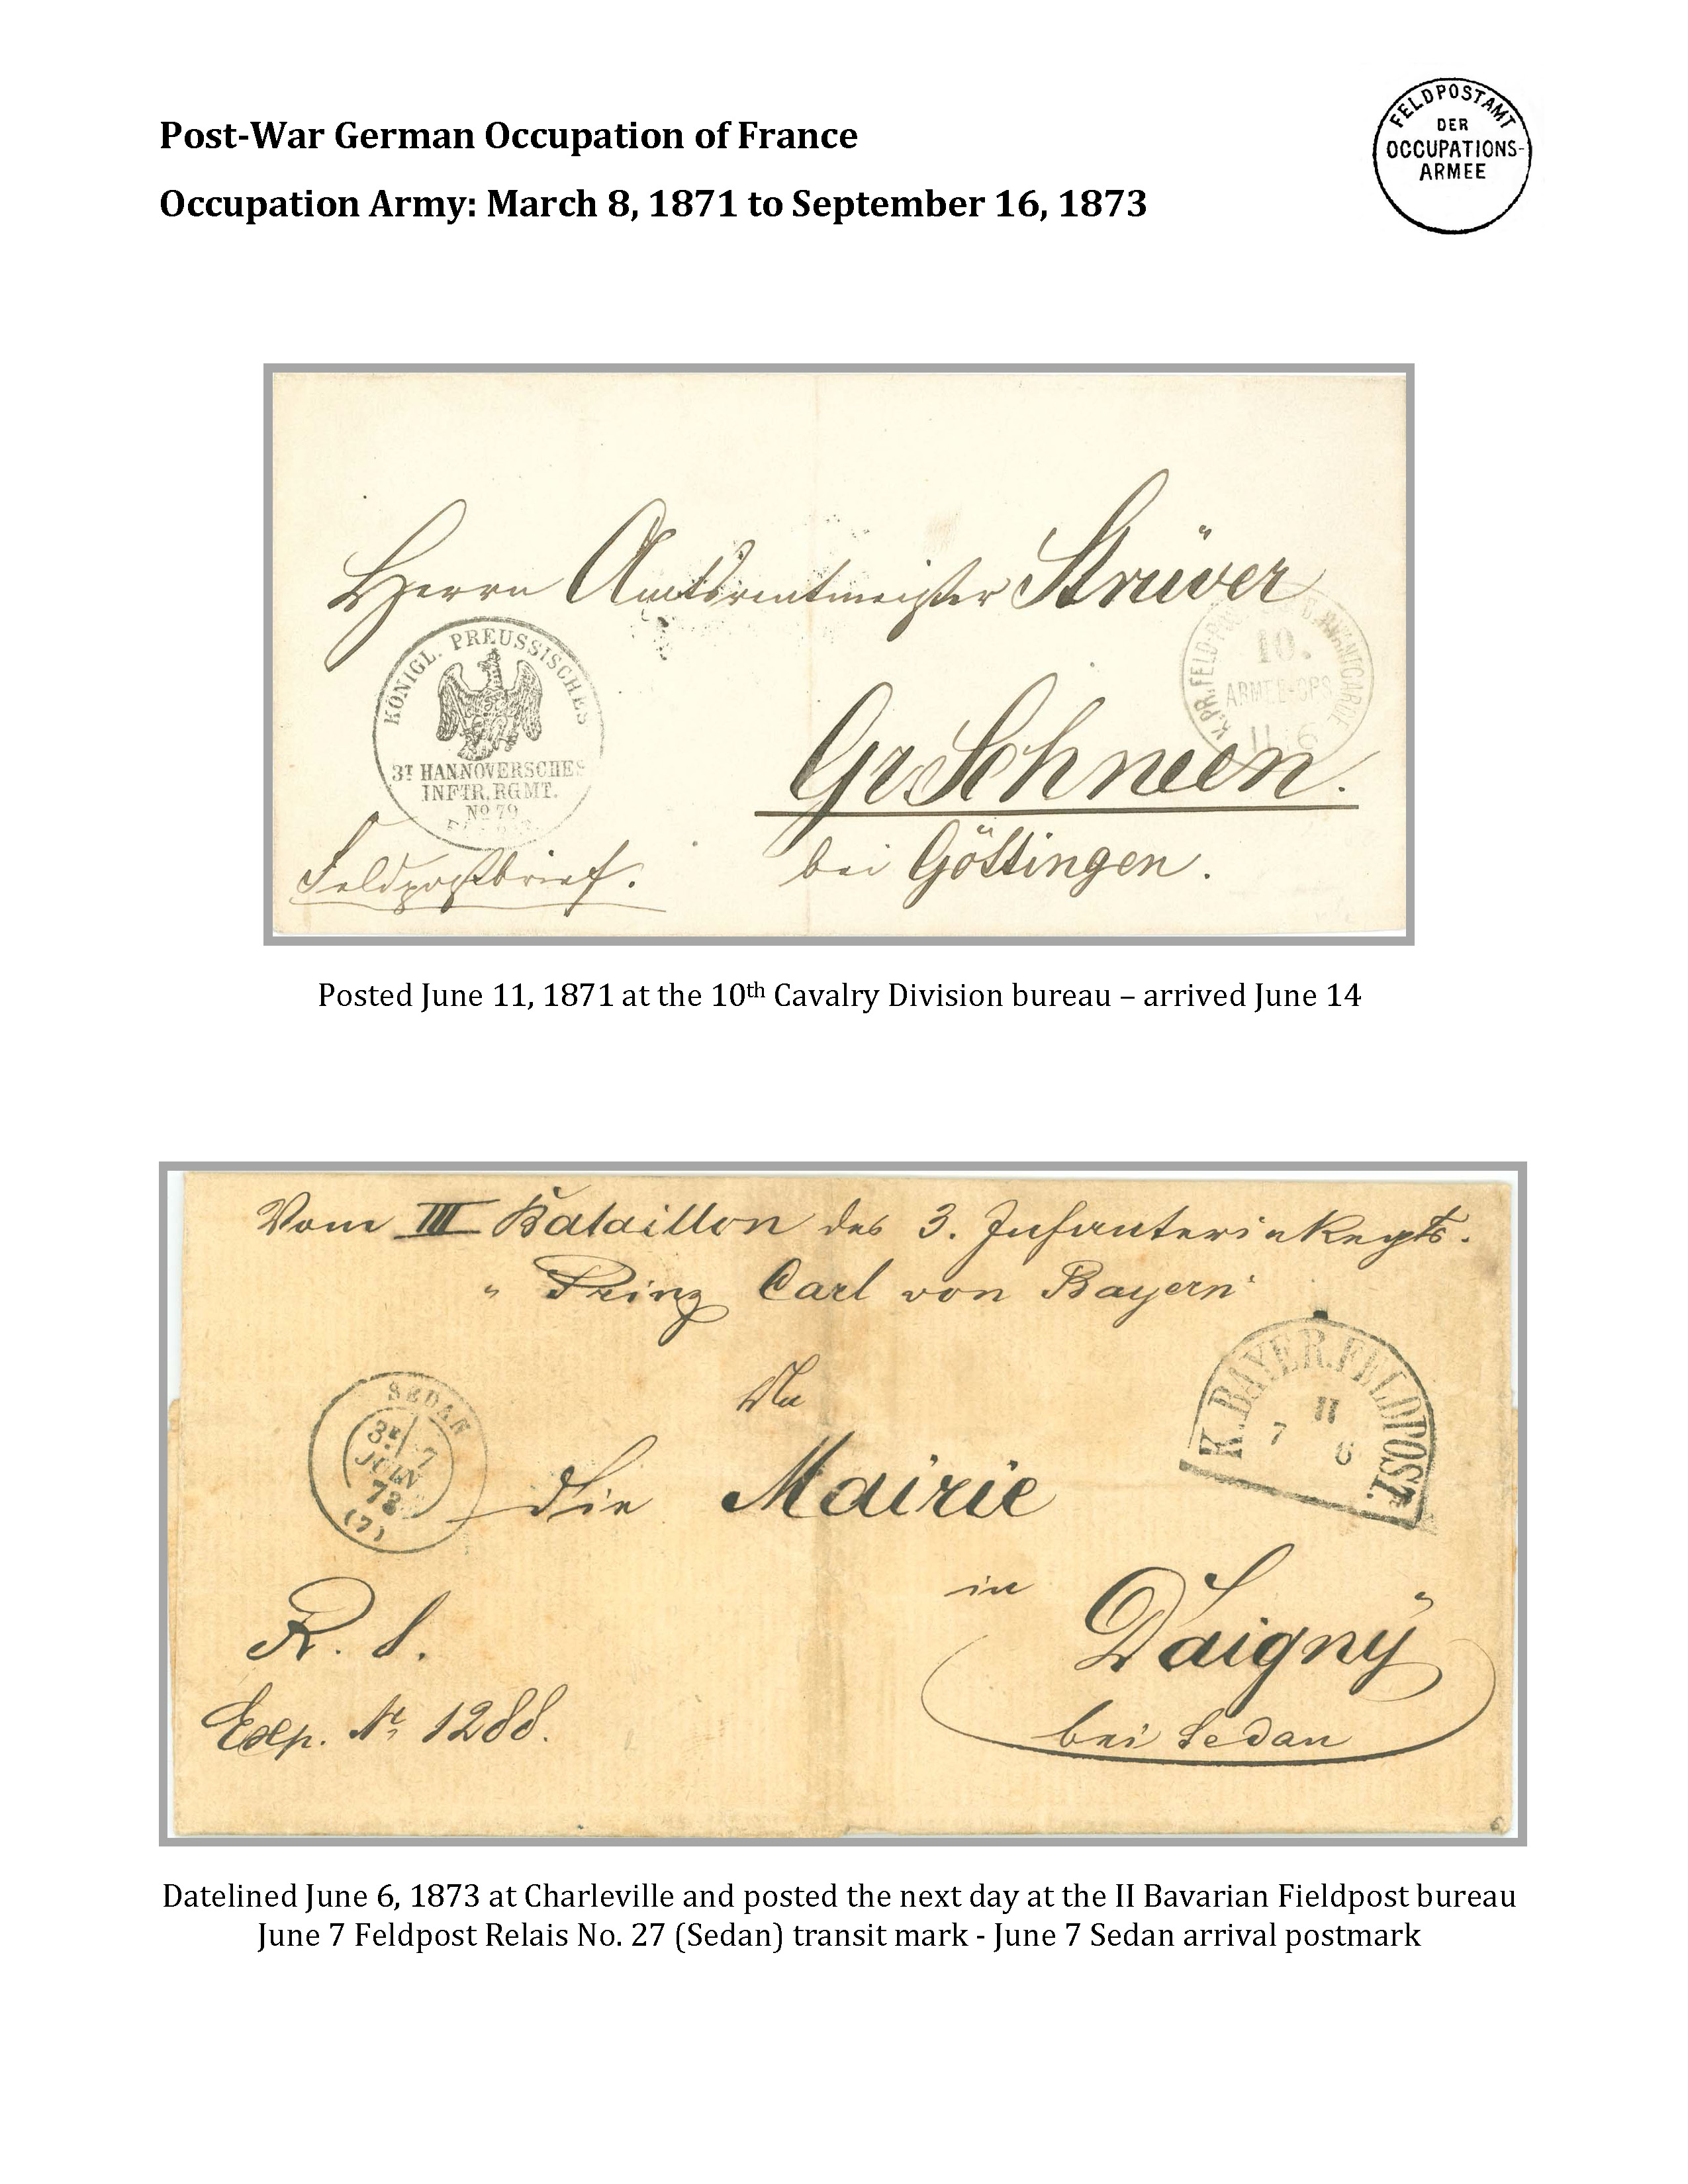 Post-War German Occupation of France
Occupation Army: March 8, 1871 to September 16, 1873
FELDPOSTAMT
DER
OCCUPATIONS-
ARMEE
Herrn Amtsrentmeister Strüver
KÖNIGL. PREUSSISCHES
3T HANNOVERSCHES
INFTR. RGMT.
No 79
K.PR.FELD-
10.
ARMEE-CPS
11 6
Gr Schneen.
bei Göttingen.
Feldpostbrief.
Posted June 11, 1871 at the 10th Cavalry Division bureau – arrived June 14
Vom III Bataillon des 3. Infanterie Regts.
"Prinz Carl von Bayern"
An
SEDAN
3E 7
JUIN
73
(7)
K.BAYER.FELDPOST.
II
7 6
die Mairie
in
Daigny
bei Sedan
R. S.
Exp. Nr. 1288.
Datelined June 6, 1873 at Charleville and posted the next day at the II Bavarian Fieldpost bureau
June 7 Feldpost Relais No. 27 (Sedan) transit mark - June 7 Sedan arrival postmark